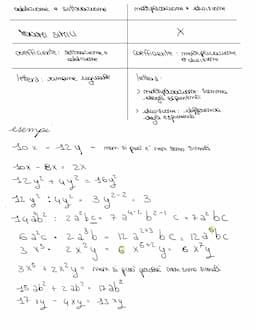 addizione e sottrazione
moltiplicazione e divisione
TERMINI SIMILI
X
coefficiente: sottrazione e addizione
coefficiente: moltiplicazione e divisione
lettera: rimane uguale
lettera:
moltiplicazione: somma degli esponenti
divisione: differenza degli esponenti
esempi
10x - 12y = non si può e' non sono simili
10x - 8x = 2x
12y² + 4y² = 16y²
12y² : 4y² = 3y²⁻² = 3
6a²c · 2a³b = 12a²⁺³bc = 12a⁵bc
3x⁵ · 2x²y = 6x⁵⁺²y = 6x⁷y
3x⁵ + 2x²y = non si può perché non sono simili
15ab² + 2ab² = 17ab²
17xy - 4xy = 13xy